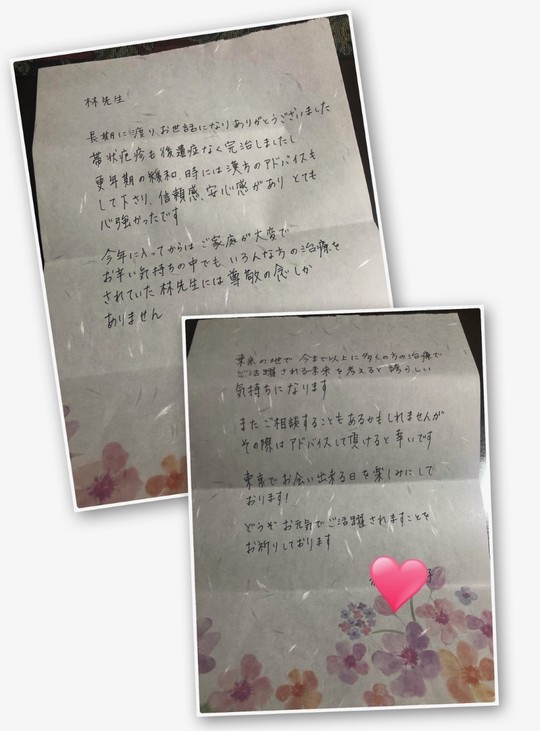 林先生
長期に渡り、お世話になりありがとうございました
帯状疱疹も後遺症なく完治しましたし
更年期の緩和、時には漢方のアドバイスも
して下さり、信頼感、安心感があり とても
心強かったです
今年に入ってからは ご家庭が大変で
お辛い気持ちの中でも、いろんな方の治療を
されていた 林先生には 尊敬の念しか
ありません
東京の地で 今まで以上に多くの方の治療で
ご活躍される未来を考えると 誇らしい
気持ちになります
またご相談することもあるかもしれませんが
その際は アドバイスして頂けると幸いです
東京でお会い出来る日を楽しみにして
おります!
どうぞ お元気でご活躍されますことを
お祈りしております